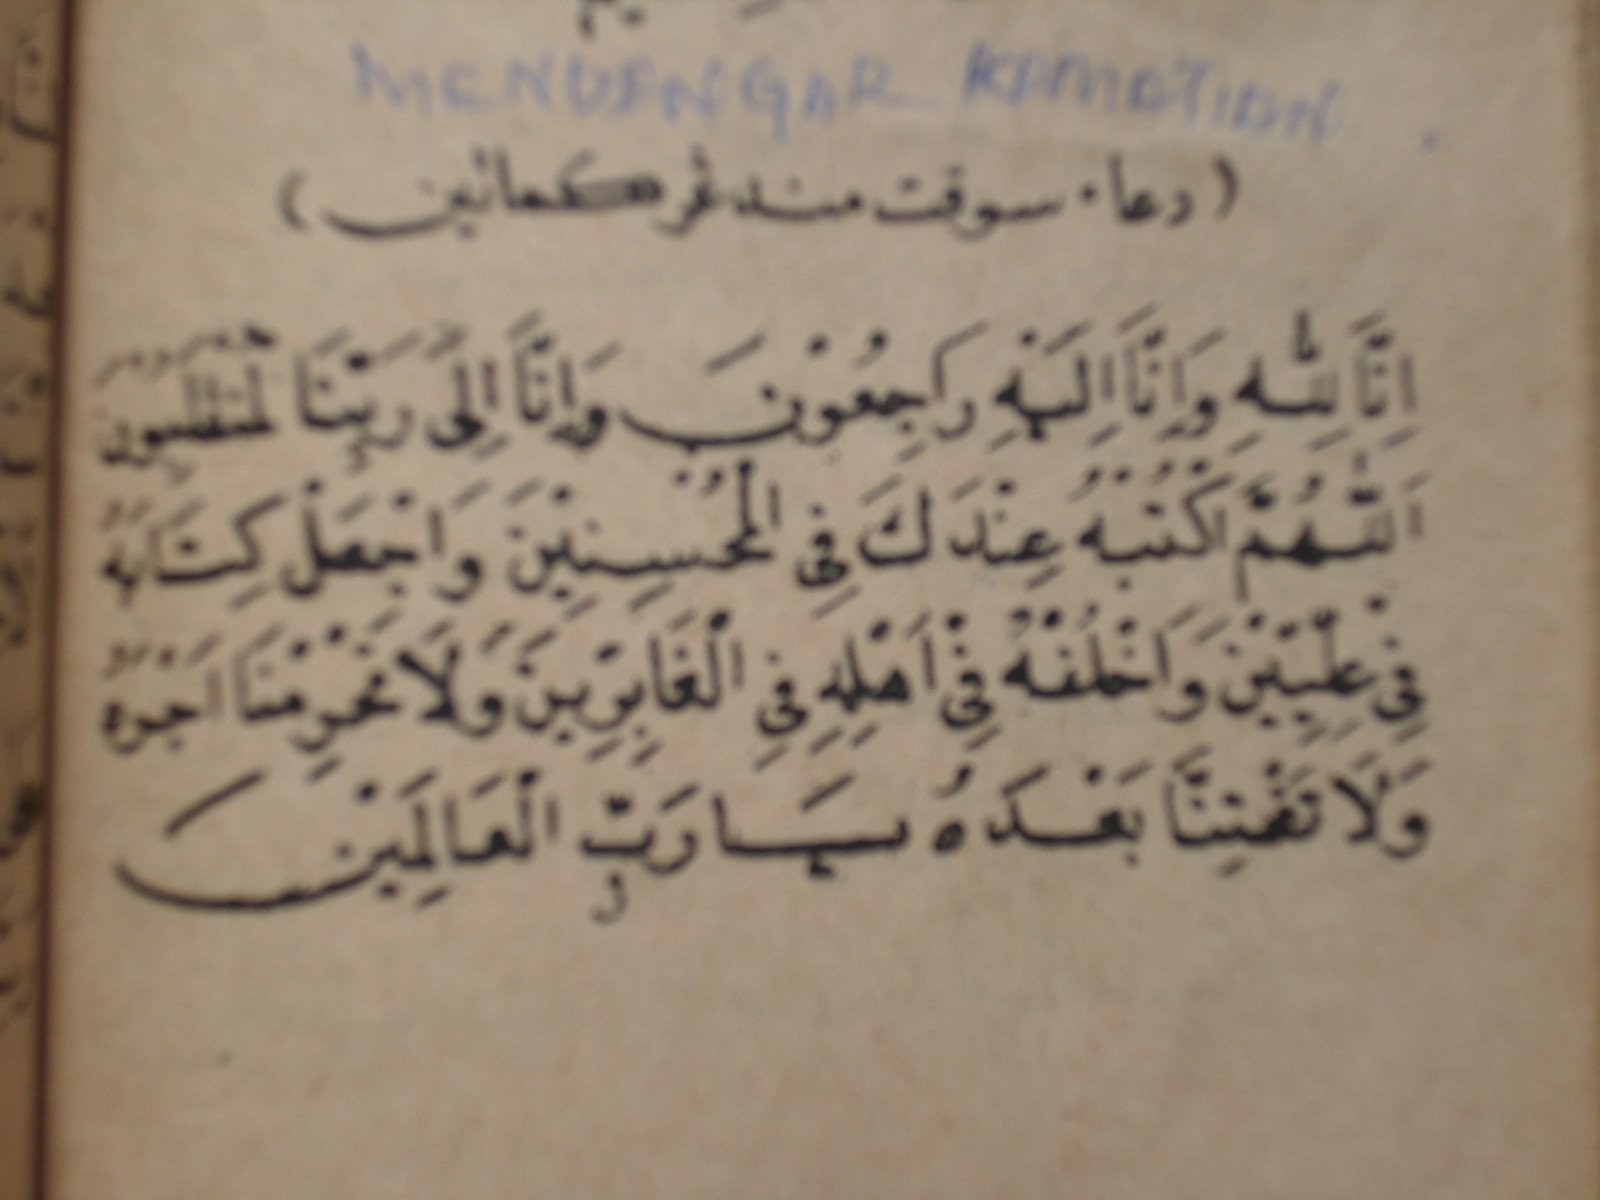 MENDENGAR KEMATIAN.
(دعاء سوقت مندڠر كماتين)
اِنَّا لِلّٰهِ وَاِنَّا اِلَيْهِ رَاجِعُوْنَ وَاِنَّا اِلَى رَبِّنَا لَمُنْقَلِبُوْنَ
اَللّٰهُمَّ اكْتُبْهُ عِنْدَكَ فِى الْمُحْسِنِيْنَ وَاجْعَلْ كِتَابَهُ
فِيْ عِلِّيِّيْنَ وَاخْلُفْهُ فِيْ اَهْلِهِ فِى الْغَابِرِيْنَ وَلَا تَحْرِمْنَا اَجْرَهُ
وَلَا تَفْتِنَّا بَعْدَهُ يَارَبَّ الْعَالَمِيْنَ